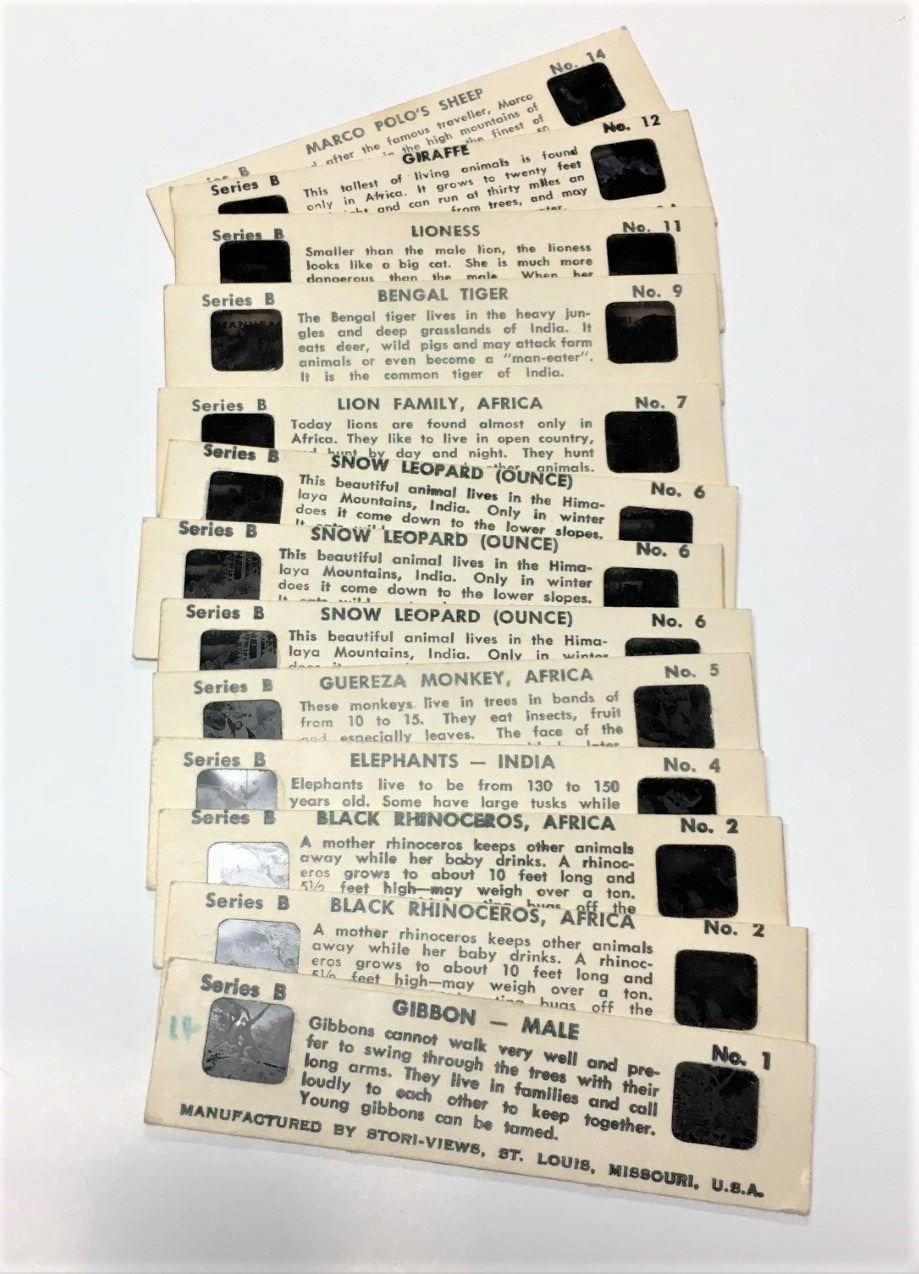 No. 14
MARCO POLO'S SHEEP
after the famous traveller, Marco
in the high mountains of
the finest of
Series B
GIRAFFE
No. 12
This tallest of living animals is found
only in Africa. It grows to twenty feet
and can run at thirty miles an
from trees, and may
Series B
LIONESS
No. 11
Smaller than the male lion, the lioness
looks like a big cat. She is much more
dangerous than the male. When her
Series B
BENGAL TIGER
No. 9
The Bengal tiger lives in the heavy jun-
gles and deep grasslands of India. It
eats deer, wild pigs and may attack farm
animals or even become a "man-eater".
It is the common tiger of India.
Series B
LION FAMILY, AFRICA
No. 7
Today lions are found almost only in
Africa. They like to live in open country,
hunt by day and night. They hunt
other animals.
Series B
SNOW LEOPARD (OUNCE)
No. 6
This beautiful animal lives in the Hima-
laya Mountains, India. Only in winter
does it come down to the lower slopes.
Series B
SNOW LEOPARD (OUNCE)
No. 6
This beautiful animal lives in the Hima-
laya Mountains, India. Only in winter
does it come down to the lower slopes.
It eats wild
Series B
SNOW LEOPARD (OUNCE)
No. 6
This beautiful animal lives in the Hima-
laya Mountains, India. Only in winter
does it
Series B
GUEREZA MONKEY, AFRICA
No. 5
These monkeys live in trees in bands of
from 10 to 15. They eat insects, fruit
and especially leaves. The face of the
Series B
ELEPHANTS — INDIA
No. 4
Elephants live to be from 130 to 150
years old. Some have large tusks while
Series B
BLACK RHINOCEROS, AFRICA
No. 2
A mother rhinoceros keeps other animals
away while her baby drinks. A rhinoc-
eros grows to about 10 feet long and
5½ feet high—may weigh over a ton.
bugs off the
Series B
BLACK RHINOCEROS, AFRICA
No. 2
A mother rhinoceros keeps other animals
away while her baby drinks. A rhinoc-
eros grows to about 10 feet long and
5½ feet high—may weigh over a ton.
bugs off the
Series B
GIBBON — MALE
No. 1
Gibbons cannot walk very well and pre-
fer to swing through the trees with their
long arms. They live in families and call
loudly to each other to keep together.
Young gibbons can be tamed.
MANUFACTURED BY STORI-VIEWS, ST. LOUIS, MISSOURI, U.S.A.